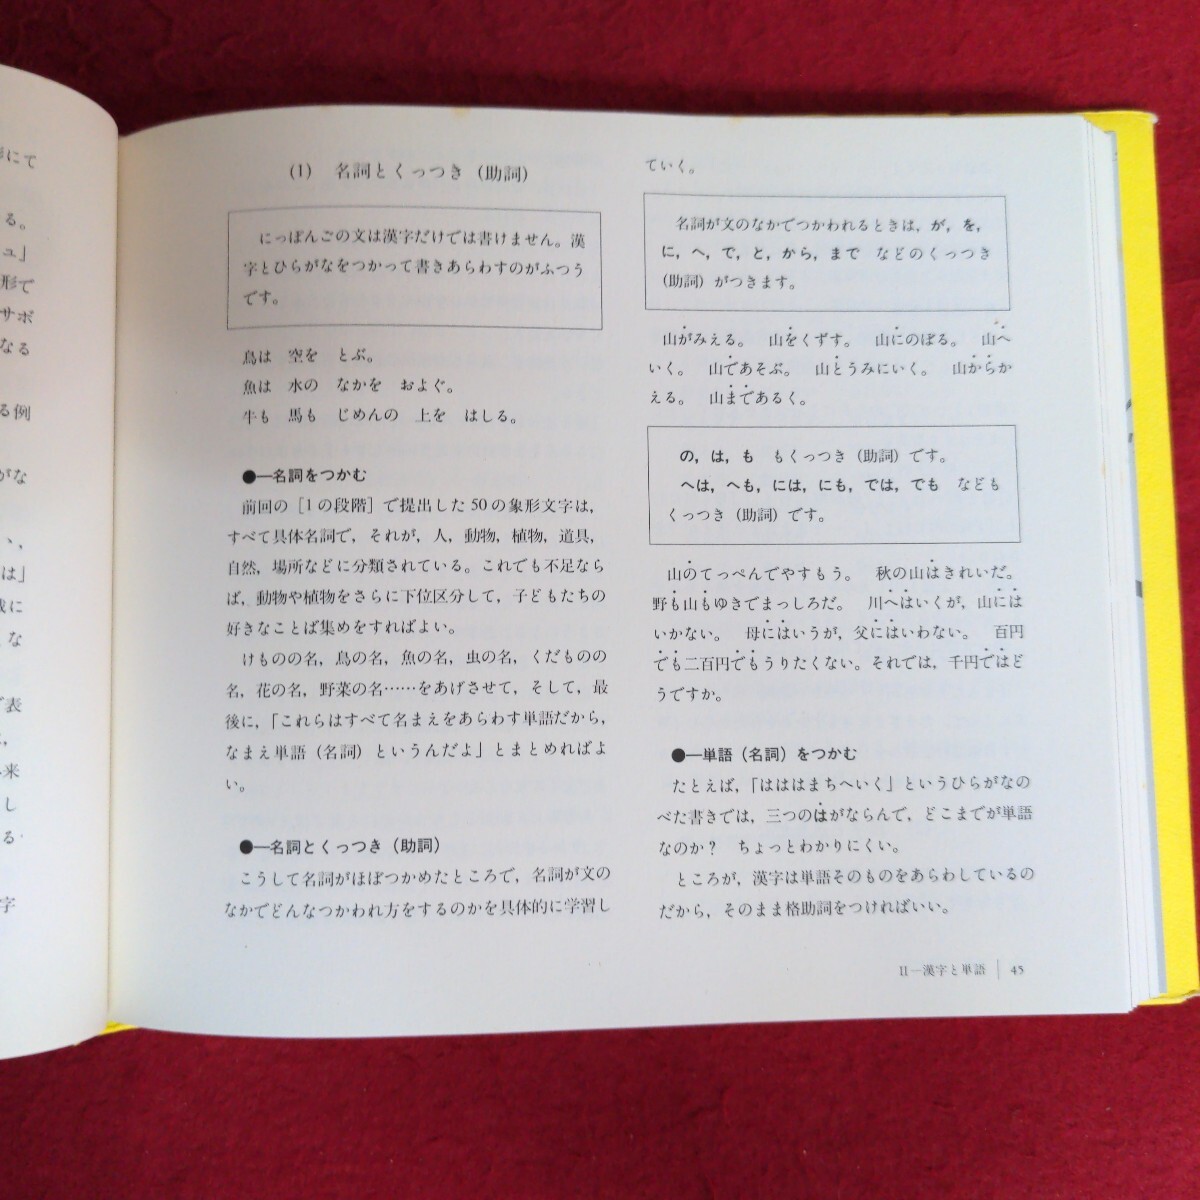 にて
る。
ュ」
形で
サボ
なる
る例
がな
い、
は」
成に
な
で表
は，
来
し
る
字
(1)　名詞とくっつき（助詞）
にっぽんごの文は漢字だけでは書けません。漢
字とひらがなをつかって書きあらわすのがふつう
です。
鳥は　空を　とぶ。
魚は　水の　なかを　およぐ。
牛も　馬も　じめんの　上を　はしる。
●—名詞をつかむ
前回の［1の段階］で提出した50の象形文字は，
すべて具体名詞で，それが，人，動物，植物，道具，
自然，場所などに分類されている。これでも不足なら
ば，動物や植物をさらに下位区分して，子どもたちの
好きなことば集めをすればよい。
けものの名，鳥の名，魚の名，虫の名，くだものの
名，花の名，野菜の名……をあげさせて，そして，最
後に，「これらはすべて名まえをあらわす単語だから，
なまえ単語（名詞）というんだよ」とまとめればよ
い。
●—名詞とくっつき（助詞）
こうして名詞がほぼつかめたところで，名詞が文の
なかでどんなつかわれ方をするのかを具体的に学習し
ていく。
名詞が文のなかでつかわれるときは，が，を，
に，へ，で，と，から，まで　などのくっつき
（助詞）がつきます。
山がみえる。　山をくずす。　山にのぼる。　山へ
いく。　山であそぶ。　山とうみにいく。　山からか
える。　山まであるく。
の，は，も　もくっつき（助詞）です。
へは，へも，には，にも，では，でも　なども
くっつき（助詞）です。
山のてっぺんでやすもう。　秋の山はきれいだ。
野も山もゆきでまっしろだ。　川へはいくが，山には
いかない。　母にはいうが，父にはいわない。　百円
でも二百円でもうりたくない。それでは，千円ではど
うですか。
●—単語（名詞）をつかむ
たとえば，「はははまちへいく」というひらがなの
べた書きでは，三つのはがならんで，どこまでが単語
なのか？　ちょっとわかりにくい。
ところが，漢字は単語そのものをあらわしているの
だから，そのまま格助詞をつければいい。
II—漢字と単語｜45